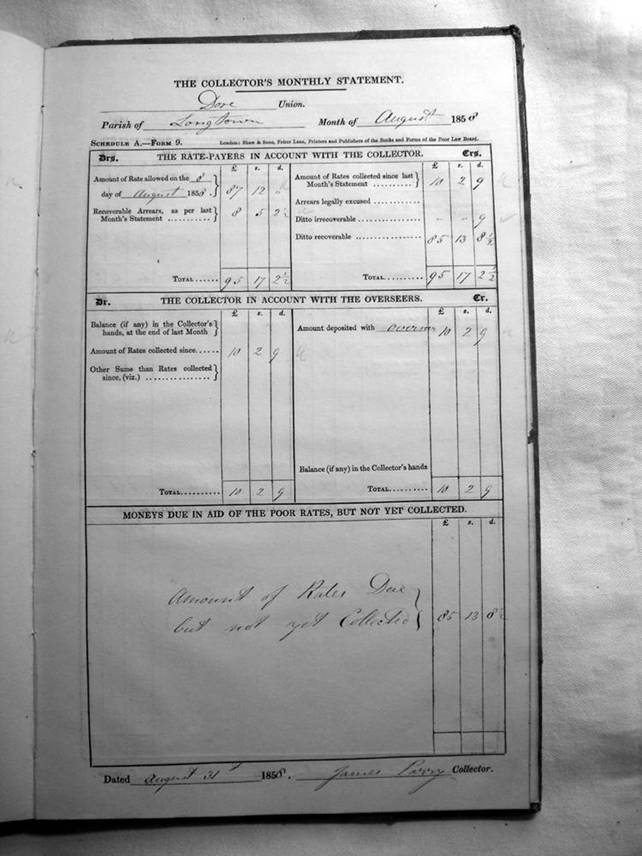 THE COLLECTOR'S MONTHLY STATEMENT.
Dore Union.
Parish of Longtown Month of August 1858
SCHEDULE A.—FORM 9. London: Shaw & Sons, Fetter Lane, Printers and Publishers of the Books and Forms of the Poor Law Board.
Drs. THE RATE-PAYERS IN ACCOUNT WITH THE COLLECTOR. Crs.
£ s. d. £ s. d.
Amount of Rate allowed on the 8
day of August 1858 } 87 12 "
Recoverable Arrears, as per last
Month's Statement .......... } 8 5 2½
Amount of Rates collected since last
Month's Statement .......... } 10 2 9
Arrears legally excused ............
Ditto irrecoverable ................ " " 9
Ditto recoverable ................. 85 13 8½
TOTAL...... 95 17 2½ TOTAL.......... 95 17 2½
Dr. THE COLLECTOR IN ACCOUNT WITH THE OVERSEERS. Cr.
£ s. d. £ s. d.
Balance (if any) in the Collector's
hands, at the end of last Month }
Amount of Rates collected since...... 10 2 9
Other Sums than Rates collected
since, (viz.) ................ }
Amount deposited with 10 2 9
Balance (if any) in the Collector's hands
TOTAL.......... 10 2 9 TOTAL.......... 10 2 9
MONEYS DUE IN AID OF THE POOR RATES, BUT NOT YET COLLECTED.
£ s. d.
Amount of Rates Due
but not yet Collected } 85 13 8½
Dated August 31st 1858. James Parry Collector.